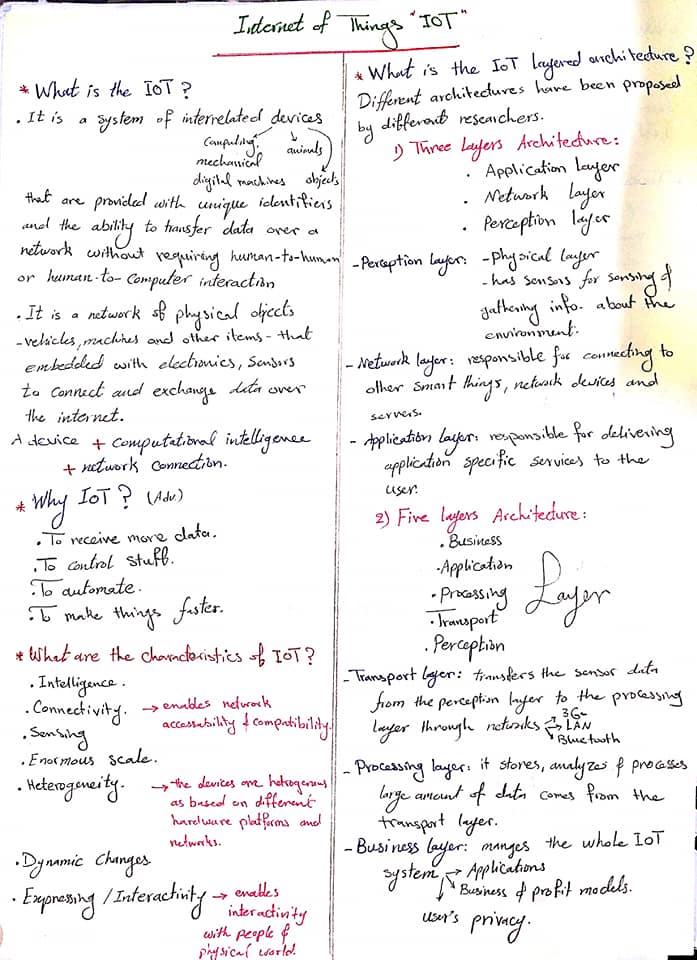 Internet of Things "IoT"
* What is the IoT?
. It is a system of interrelated devices
computing, animals
mechanical
digital machines objects
that are provided with unique identifiers
and the ability to transfer data over a
network without requiring human-to-human
or human-to-computer interaction
. It is a network of physical objects
-vehicles, machines and other items - that
embedded with electronics, sensors
to connect and exchange data over
the internet.
A device + computational intelligence
+ network connection.
* Why IoT? (Adv.)
. To receive more data.
. To control stuff.
. To automate.
. To make things faster.
* What are the characteristics of IoT?
. Intelligence.
. Connectivity. → enables network
accessability & compatibility.
. Sensing
. Enormous scale.
. Heterogeneity. → the devices are hetrogenous
as based on different
hardware platforms and
networks.
. Dynamic Changes
. Expressing / Interactivity → enables
interactivity
with people &
physical world.
* What is the IoT layered architecture?
Different architectures have been proposed
by different researchers.
1) Three Layers Architecture:
. Application Layer
. Network layer
. Perception layer
- Perception layer: - physical layer
- has sensors for sensing &
gathering info. about the
environment.
- Network layer: responsible for connecting to
other smart things, network devices and
servers.
- Application layer: responsible for delivering
application specific services to the
user.
2) Five layers Architecture:
. Business
. Application
. Processing Layer
. Transport
. Perception
- Transport layer: transfers the sensor data
from the perception layer to the processing
layer through networks → 3G
→ LAN
Bluetooth
- Processing layer: it stores, analyzes & processes
large amount of data comes from the
transport layer.
- Business layer: manges the whole IoT
system → Applications
Business & profit models.
user's privacy.